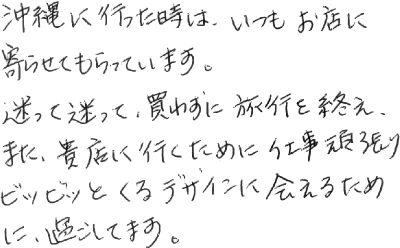 沖縄に行った時は、いつもお店に
寄らせてもらっています。
迷って迷って、買わずに旅行を終え、
また、貴店に行くために仕事頑張り
ビッビッとくるデザインに会えるため
に、過ごしてます。